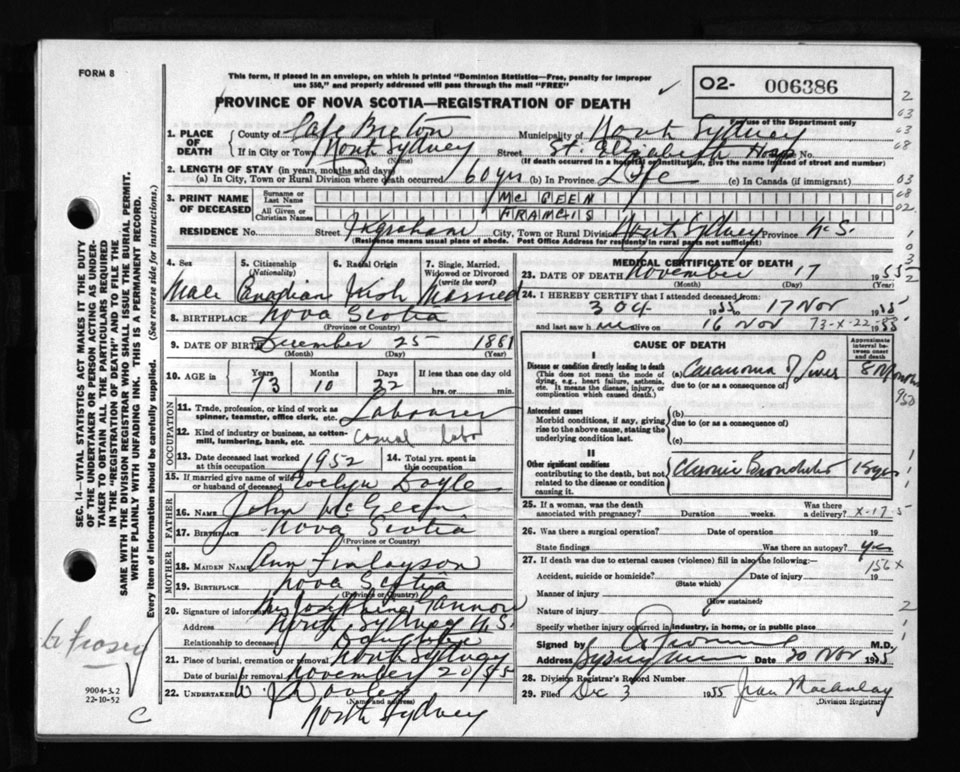 FORM 8
This form, if placed in an envelope, on which is printed "Dominion Statistics—Free, penalty for improper
use $50," and properly addressed will pass through the mail "FREE"
O2- 006386
PROVINCE OF NOVA SCOTIA—REGISTRATION OF DEATH
For use of the Department only
1. PLACE OF DEATH County of Cape Breton Municipality of North Sydney
If in City or Town North Sydney Street St. Elizabeth Hosp No.
(Name) (If death occurred in a hospital or institution, give the name instead of street and number)
2. LENGTH OF STAY (in years, months and days)
(a) In City, Town or Rural Division where death occurred 60 yrs (b) In Province Life (c) In Canada (if immigrant)
3. PRINT NAME OF DECEASED Surname or Last Name Mc GEEN
All Given or Christian Names FRANCIS
RESIDENCE No. Street Ingraham City, Town or Rural Division North Sydney Province N.S.
(Residence means usual place of abode. Post Office Address for residents in rural parts not sufficient)
4. Sex 5. Citizenship (Nationality) 6. Racial Origin 7. Single, Married, Widowed or Divorced (write the word)
Male Canadian Irish Married
8. BIRTHPLACE Nova Scotia
(Province or Country)
9. DATE OF BIRTH December 25 1881
(Month) (Day) (Year)
10. AGE in Years Months Days If less than one day old
73 10 22 hrs. or min.
OCCUPATION
11. Trade, profession, or kind of work as spinner, teamster, office clerk, etc. Labourer
12. Kind of industry or business, as cotten-mill, lumbering, bank, etc. Casual labor
13. Date deceased last worked at this occupation 1952 14. Total yrs. spent in this occupation
15. If married give name of wife or husband of deceased Evelyn Doyle
FATHER
16. Name John McGeen
17. Birthplace Nova Scotia
(Province or Country)
MOTHER
18. MAIDEN NAME Ann Finlayson
19. BIRTHPLACE Nova Scotia
(Province or Country)
20. Signature of informant Mrs Josephine Gannon
Address North Sydney N.S.
Relationship to deceased Daughter
21. Place of burial, cremation or removal North Sydney
Date of burial or removal November 20/55
22. UNDERTAKER W. J. Dooley
(Name and address)
North Sydney
MEDICAL CERTIFICATE OF DEATH
23. DATE OF DEATH November 17 1955
(Month) (Day) (Year)
24. I HEREBY CERTIFY that I attended deceased from:
3 Oct 1955 to 17 Nov 1955
and last saw h im alive on 16 Nov 1955
73-x-22
CAUSE OF DEATH
Approximate interval between onset and death
I
Disease or condition directly leading to death (a) Carcinoma of Liver 8 Months
(This does not mean the mode of dying, e.g., heart failure, asthenia, etc. It means the disease, injury, or complication which caused death.)
due to (or as a consequence of)
Antecedent causes
Morbid conditions, if any, giving rise to the above cause, stating the underlying condition last.
(b)
due to (or as a consequence of)
(c)
II
Other significant conditions contributing to the death, but not related to the disease or condition causing it.
Chronic Bronchitis 15 yrs
25. If a woman, was the death associated with pregnancy? Duration weeks. Was there a delivery? x-17-5
26. Was there a surgical operation? Date of operation 19
State findings Was there an autopsy? Yes
27. If death was due to external causes (violence) fill in also the following:—
156x
Accident, suicide or homicide? Date of injury 19
(State which)
Manner of injury
(How sustained)
Nature of injury
Specify whether injury occurred in industry, in home, or in public place
Signed by M.D.
Address Sydney Mines Date 20 Nov 1955
28. Division Registrar's Record Number
29. Filed Dec 3 1955 Jean MacAulay
(Division Registrar)
SEC. 14—VITAL STATISTICS ACT MAKES IT THE DUTY
OF THE UNDERTAKER OR PERSON ACTING AS UNDER-
TAKER TO OBTAIN ALL THE PARTICULARS REQUIRED
IN THE "REGISTRATION OF DEATH" AND TO FILE THE
SAME WITH THE DIVISION REGISTRAR WHO SHALL ISSUE THE BURIAL PERMIT.
WRITE PLAINLY WITH UNFADING INK. THIS IS A PERMANENT RECORD.
Every item of information should be carefully supplied. (See reverse side for instructions.)
Fraser
9004-3.2
22-10-52
C